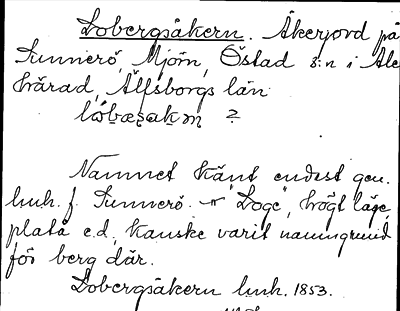 Dobergsåkern. Åkerjord på
Sunnerö, Mjörn, Östad s:n i Ale
härad, Älfsborgs län
?
Namnet känt endest gen.
lmh. f. Sunnerö. "Loge", högt läge,
platå e.d., kanske varit namngrund
för berg där.
Dobergsåkern lmh. 1853.